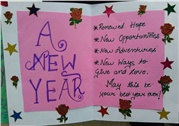 A
NEW
YEAR
* Renewed Hope
* New Opportunities
* New Adventures
* New Ways to
Give and Love.
May this be
your best year now!